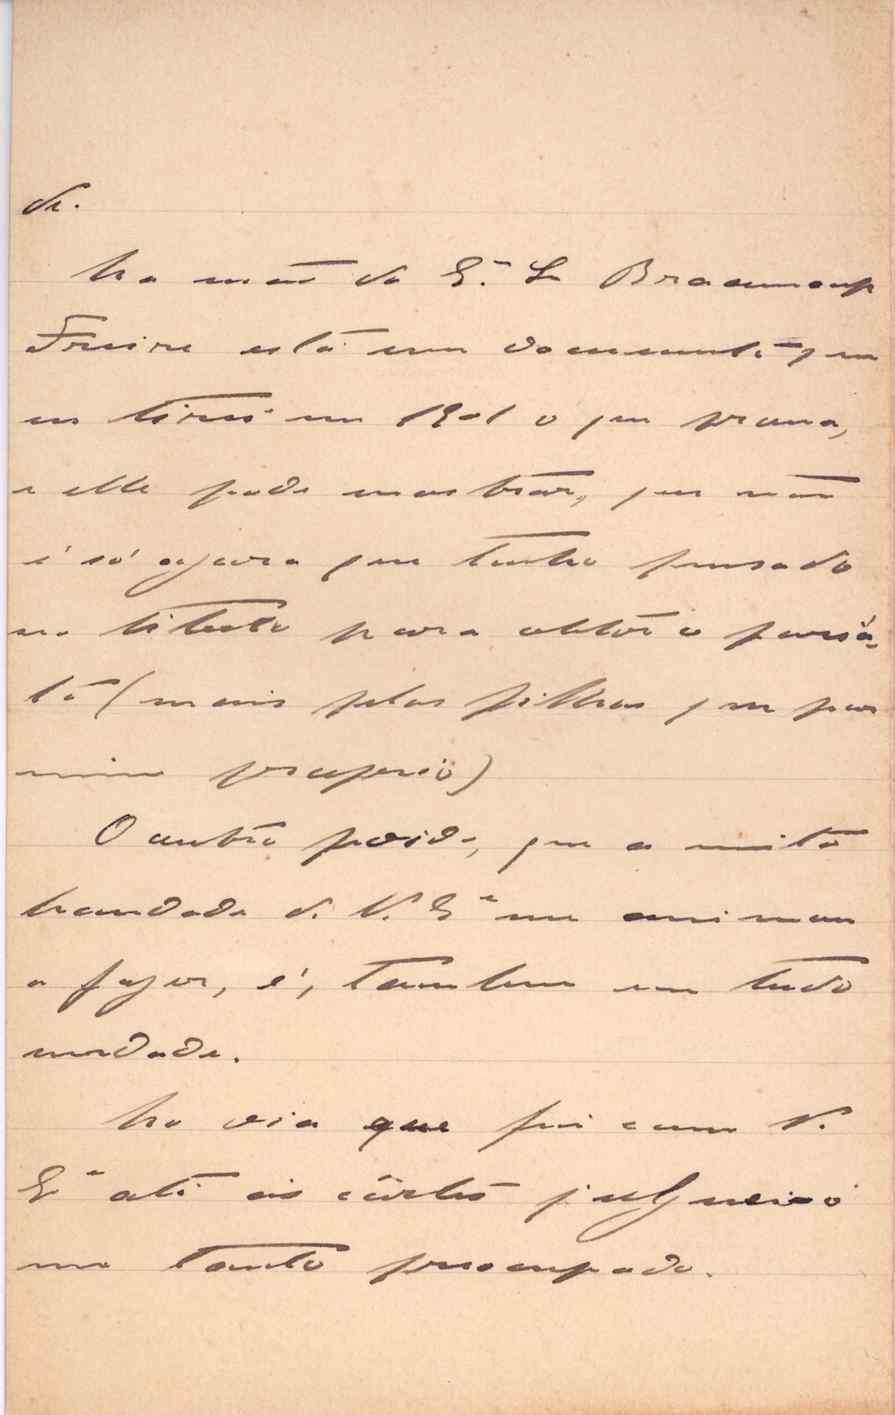 de.
Na mão do Exº. Sr Braamcamp
Freire está um documento que
eu tirei em 1901 o que prova,
e elle pode mostrar, que não
é só agora que tenho pensado
no titulo para obter o pariá-
to (mais pelos filhos que por
mim proprio)
O outro pedido, que a muita
bondade de V. Exª me animou
a fazer, é, tambem em tudo
verdade.
No dia que fui com V.
Exª até ás côrtes julguei-o
um tanto preocupado.